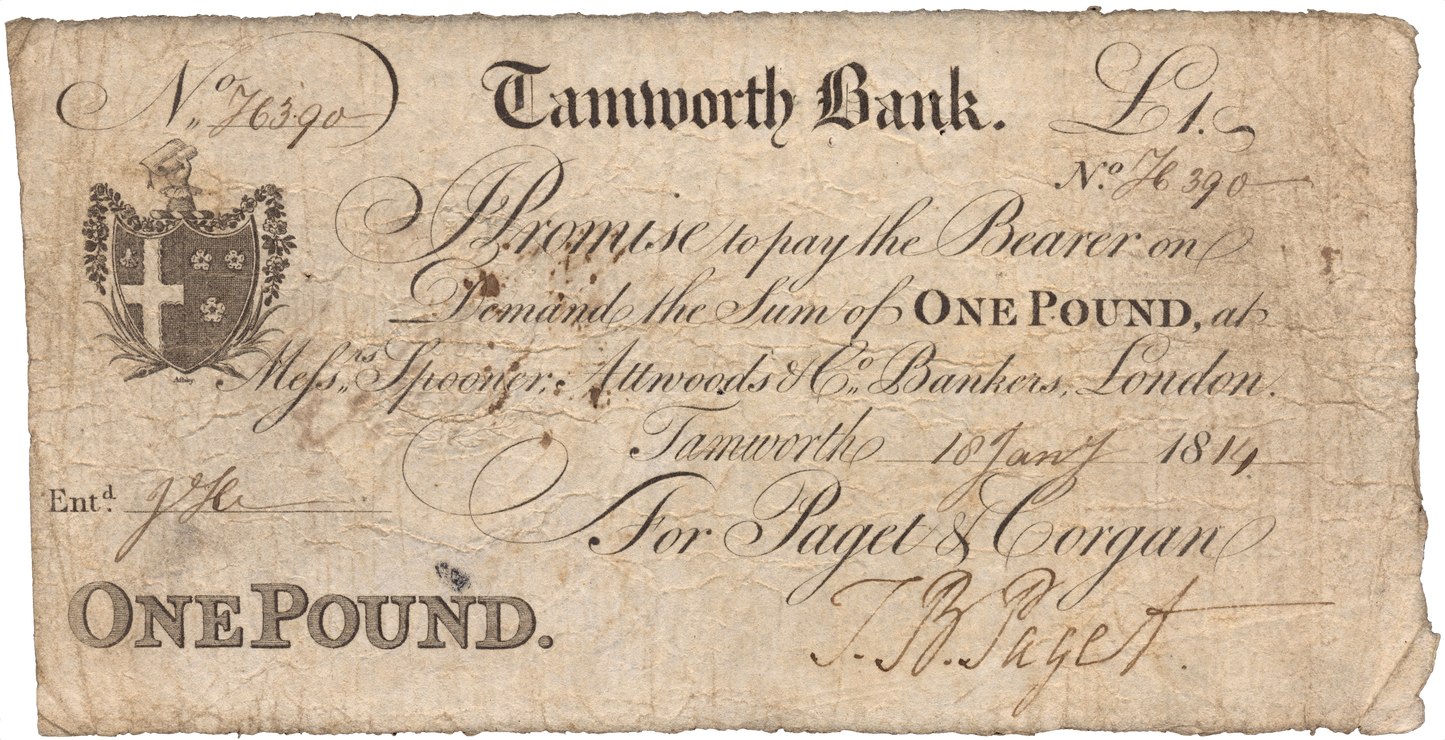 No. H390
Tamworth Bank.
£1.
No. H 390
I Promise to pay the Bearer on
Demand the Sum of ONE POUND, at
Messrs. Spooner, Attwoods & Co. Bankers, London.
Tamworth 18 Jany 1814
Entd.
For Paget & Corgan
ONE POUND.
T. B. Paget.